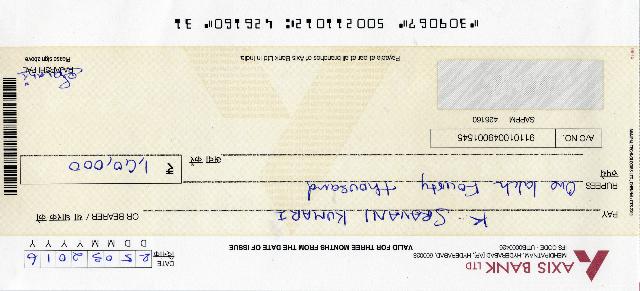 AXIS BANK LTD
MEHDIPATNAM, HYDERABAD [AP], HYDERABAD,
DATE
दिनांक
25032016
D D M M Y Y Y Y
VALID FOR THREE MONTHS FROM THE DATE OF ISSUE
PAY K. SRAVANI KUMARI OR BEARER / या धारक को
RUPEES One lakh Fourty thousand
रुपये अदा करें ₹
A/C NO. 911010049001545
SAPRM 426160
Payable at par at all branches of Axis Bank Ltd in India
Please sign above
"309067" 500211012: 426160" 31